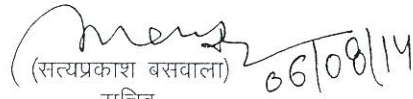 (सत्यप्रकाश बसवाला)
06/08/14
सचिव